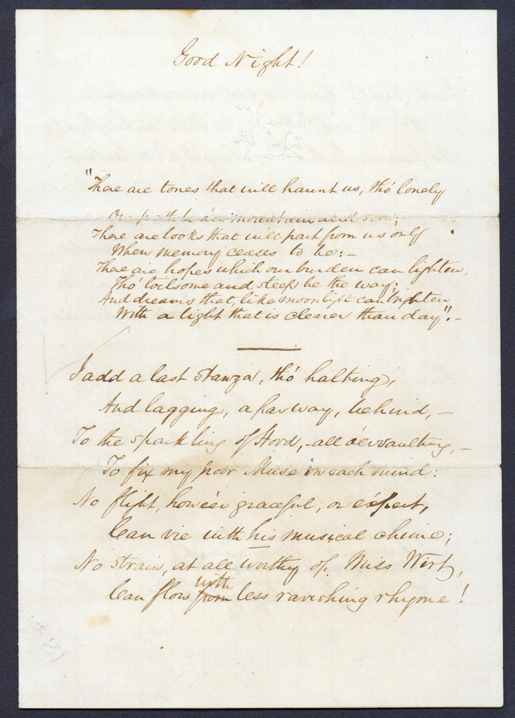 Good Night!
"There are tones that will haunt us, tho' lonely
Our path be o'er mountain and sea;
There are looks that will part from us only
When memory ceases to be:-
There are hopes which our burden can lighten,
Tho' toilsome and steep be the way;
And dreams that, like moonlight can brighten
With a light that is clearer than day".-
I add a last stanza, tho' halting,
And lagging, a far way, behind,-
To the sparkling of Hood, all o'ervaulting,-
To fix my poor Muse in each mind:
No flight, howe'er graceful, or expert,
Can vie with his musical chime;
No strain, at all worthy of Miss Wirt,
with
Can flow from less ravishing rhyme!